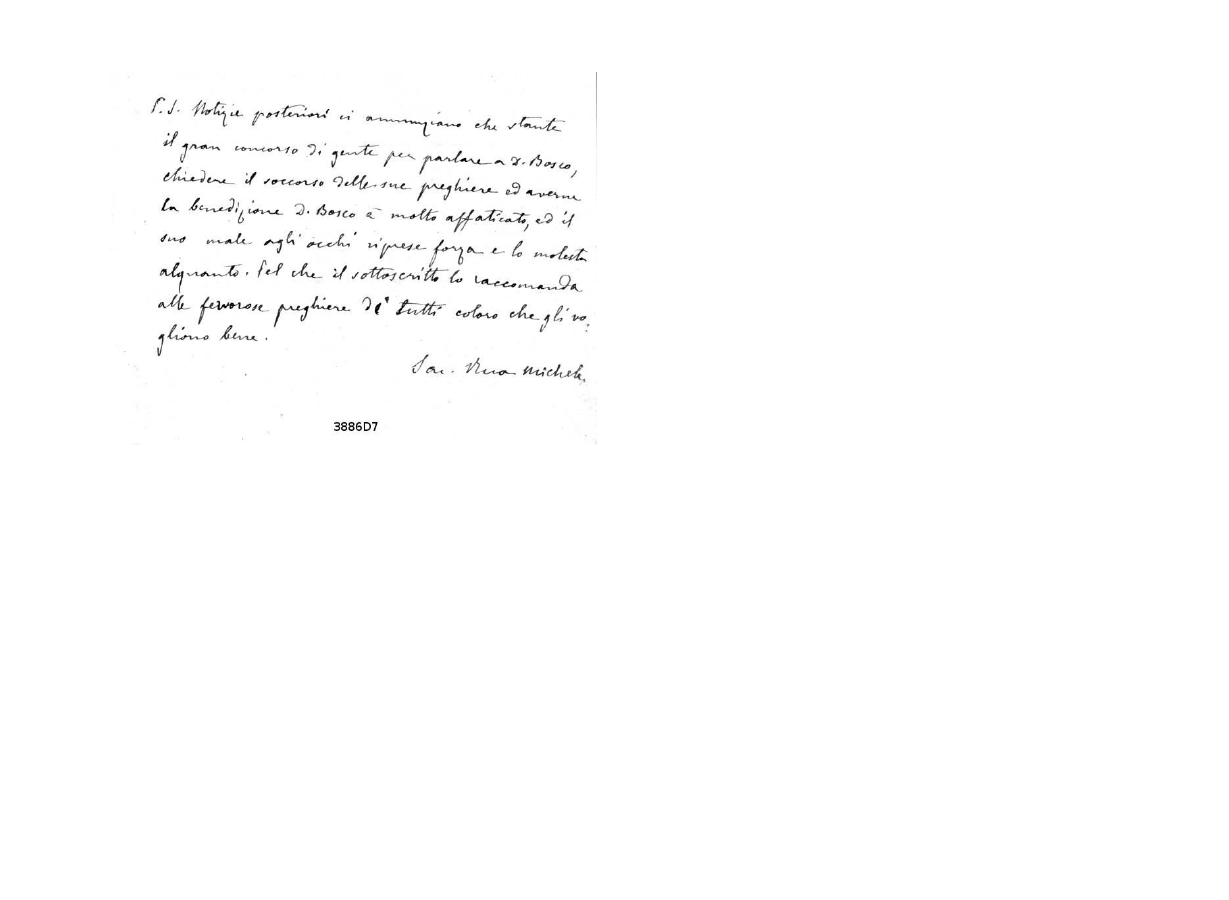 P.S. Notizie posteriori ci annunziano che stante
il gran concorso di gente per parlare a D. Bosco,
chiedere il soccorso delle sue preghiere ed averne
la benedizione D. Bosco è molto affaticato, ed il
suo male agli occhi riprese forza e lo molesta
alquanto. Pel che il sottoscritto lo raccomanda
alle fervorose preghiere di tutti coloro che gli vo-
gliono bene.
Sac. Rua Michele.
3886D7